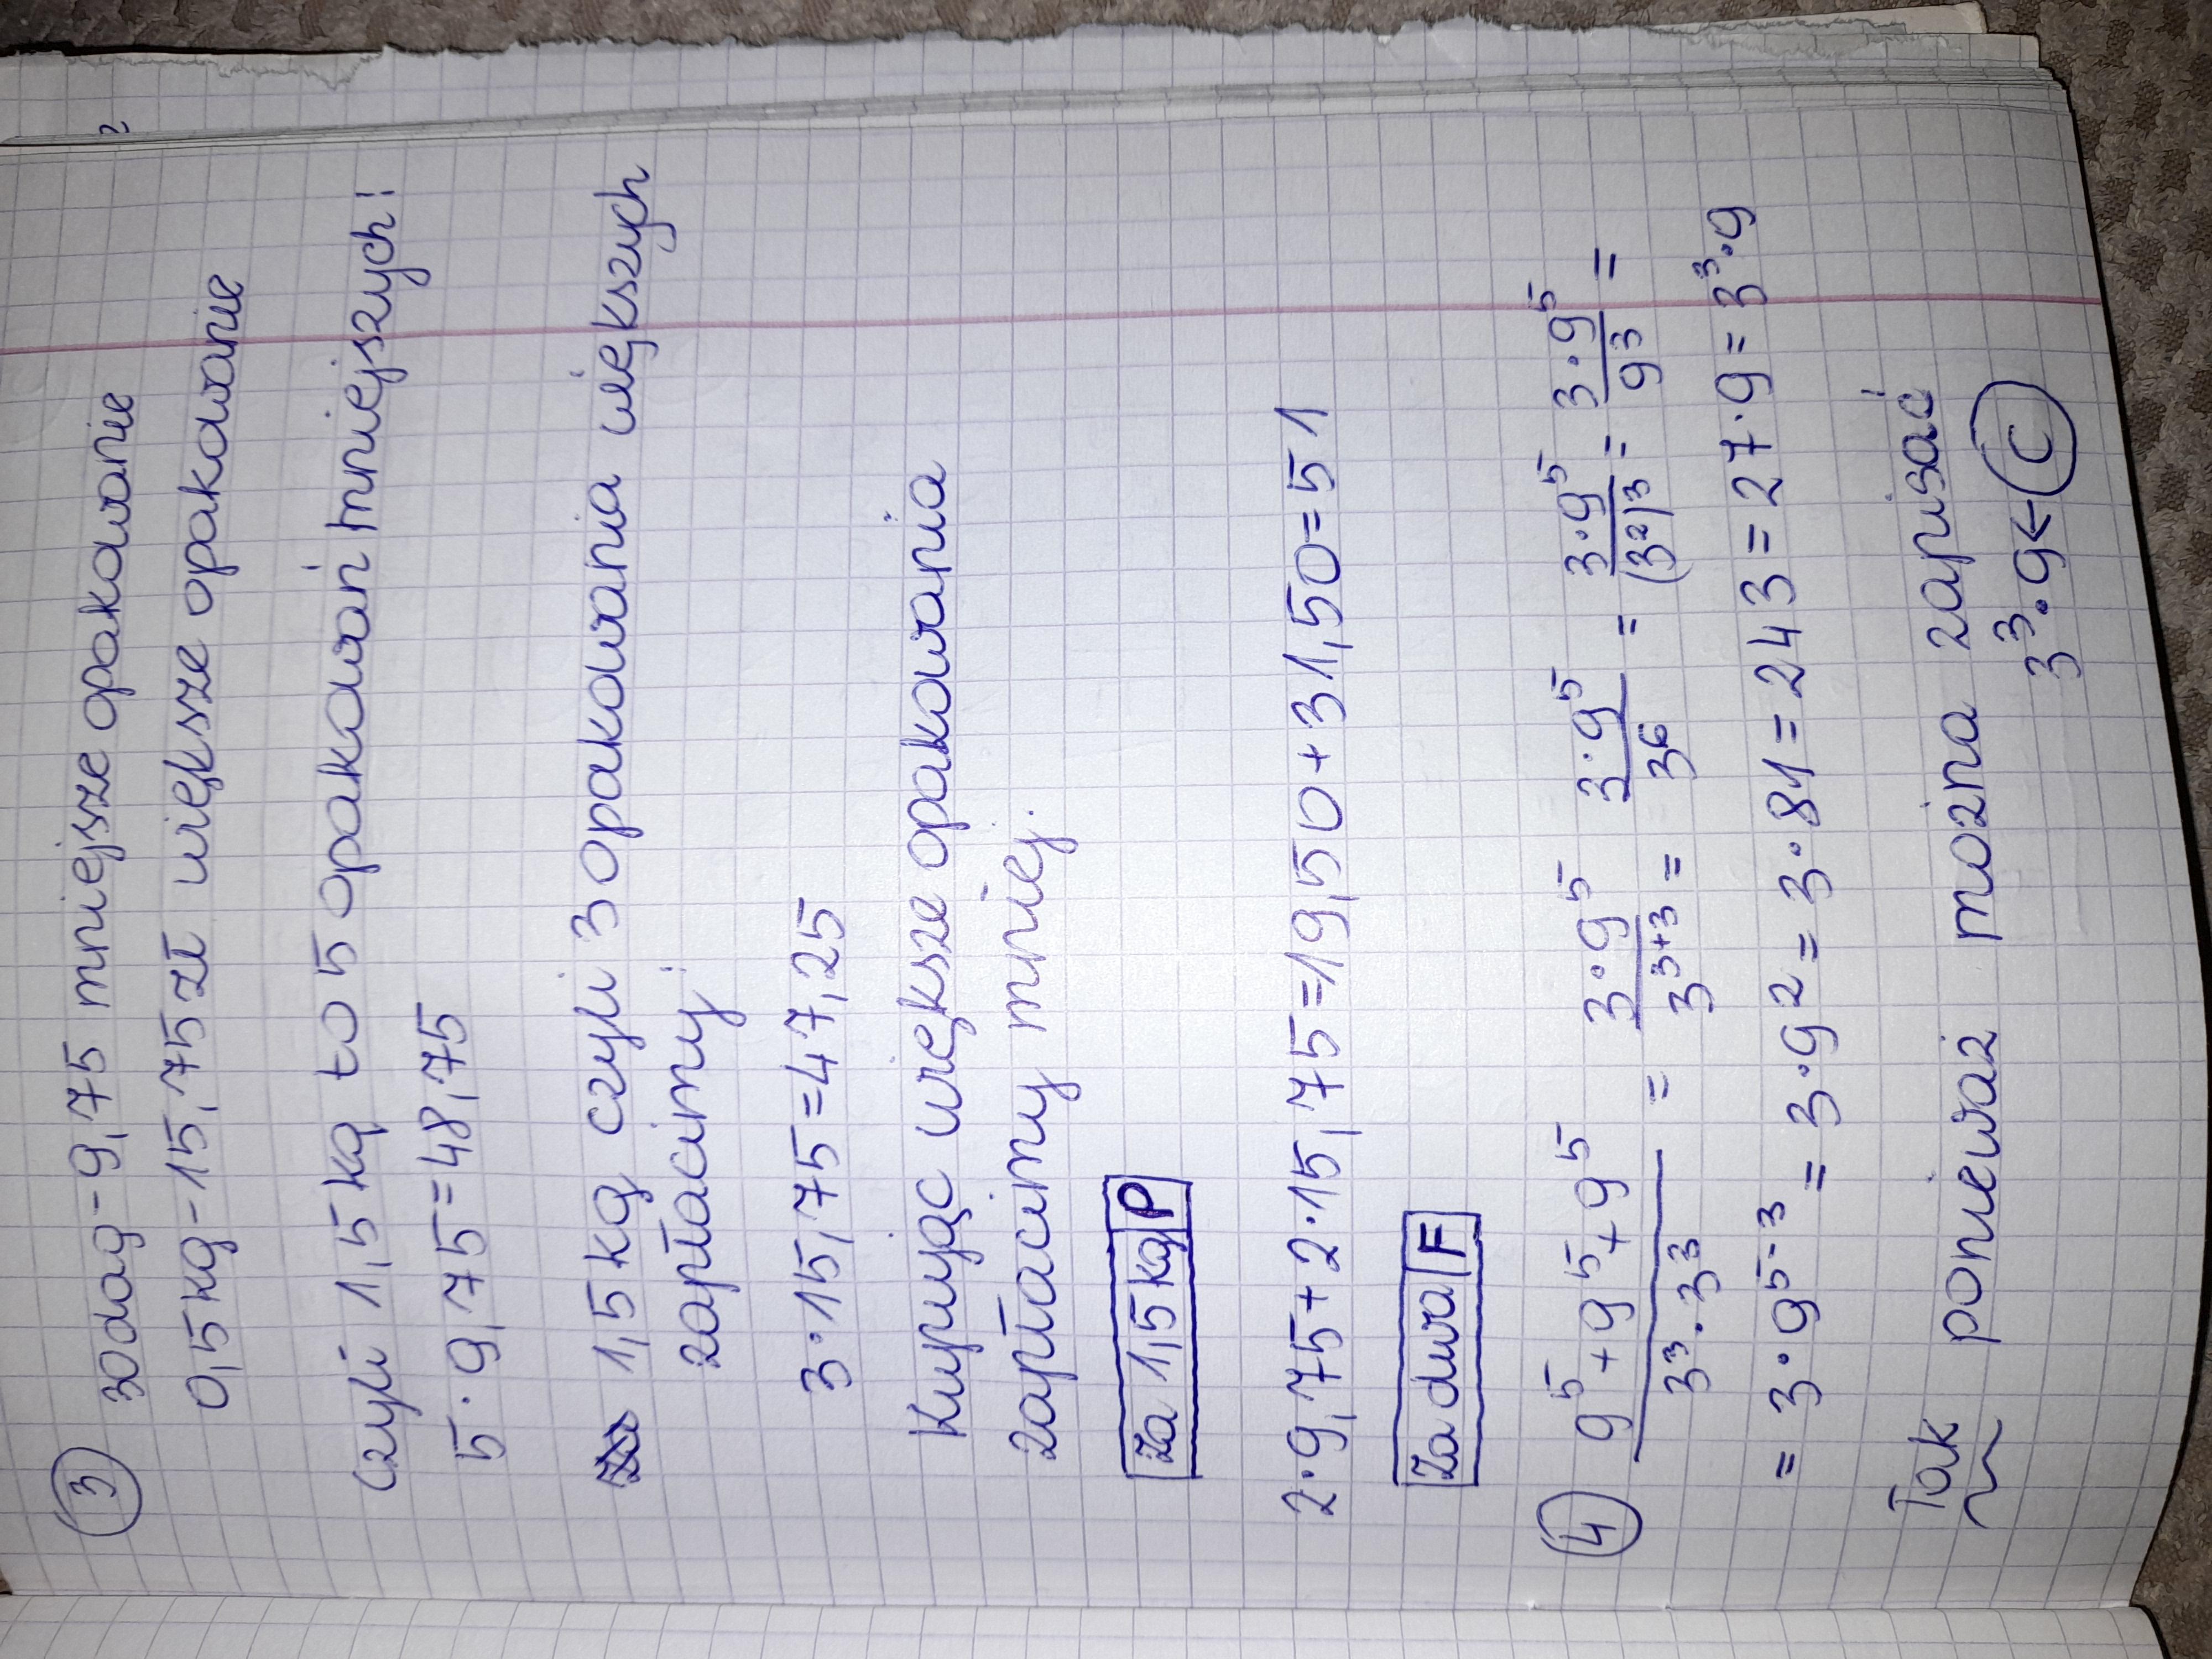 ③ 30dag-9,75 mniejsze opakowanie
0,5kg-15,75zł większe opakowanie
czyli 1,5kg to 5 opakowań mniejszych:
5·9,75=48,75
1,5kg czyli 3 opakowania większych
zapłacimy:
3·15,75=47,25
Kupując większe opakowania
zapłacimy mniej.
Za 1,5kg P
2·9,75+2·15,75=19,50+31,50=51
Za dwa F
④ (9⁵+9⁵+9⁵)/(3³·3³) = (3·9⁵)/(3³⁺³) = (3·9⁵)/(3⁶) = (3·9⁵)/((3²)³) = (3·9⁵)/(9³) =
=3·9⁵⁻³=3·9²=3·81=243=27·9=3³·9
Tak ponieważ można zapisać
3³·9← C